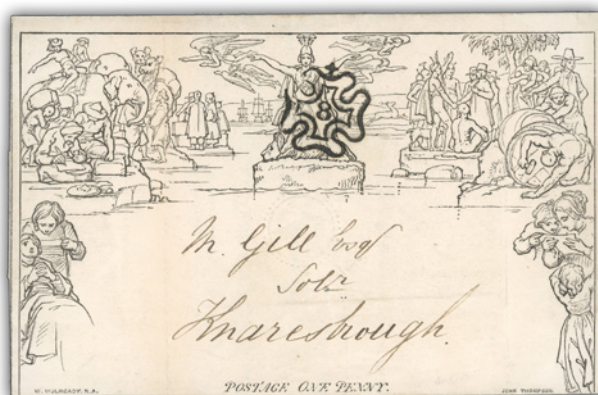 8
M. Gill Esqr
Solr
Knaresbrough.
W. MULREADY. R.A.
POSTAGE ONE PENNY.
JOHN THOMPSON